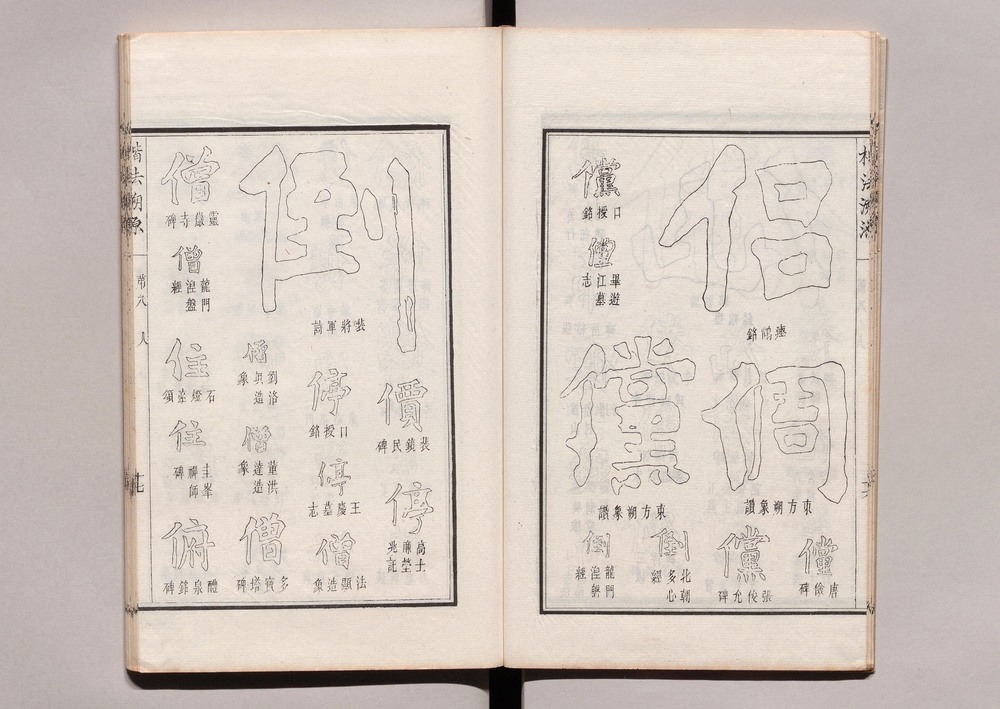 侶
瘞鶴銘
倜
東方朔象讚
儻
唐儉碑
儻
張後允碑
儻
東方朔象讚
儻
口授銘
儻
畢遊
江墓
志
倒
北朝
多心
經
倒
龍門
涅槃
經
倒
裴將軍詩
價
裴鏡民碑
停
高士
廉塋
兆記
停
口授銘
停
王慶墓志
僧
法顯造象
僧
劉洛
真造
象
僧
董洪
達造
象
僧
多寶塔碑
僧
靈巖寺碑
僧
龍門
涅盤
經
住
石燈臺頌
住
圭峯
禪師
碑
俯
醴泉銘碑
楷法溯原
第八 人
十七